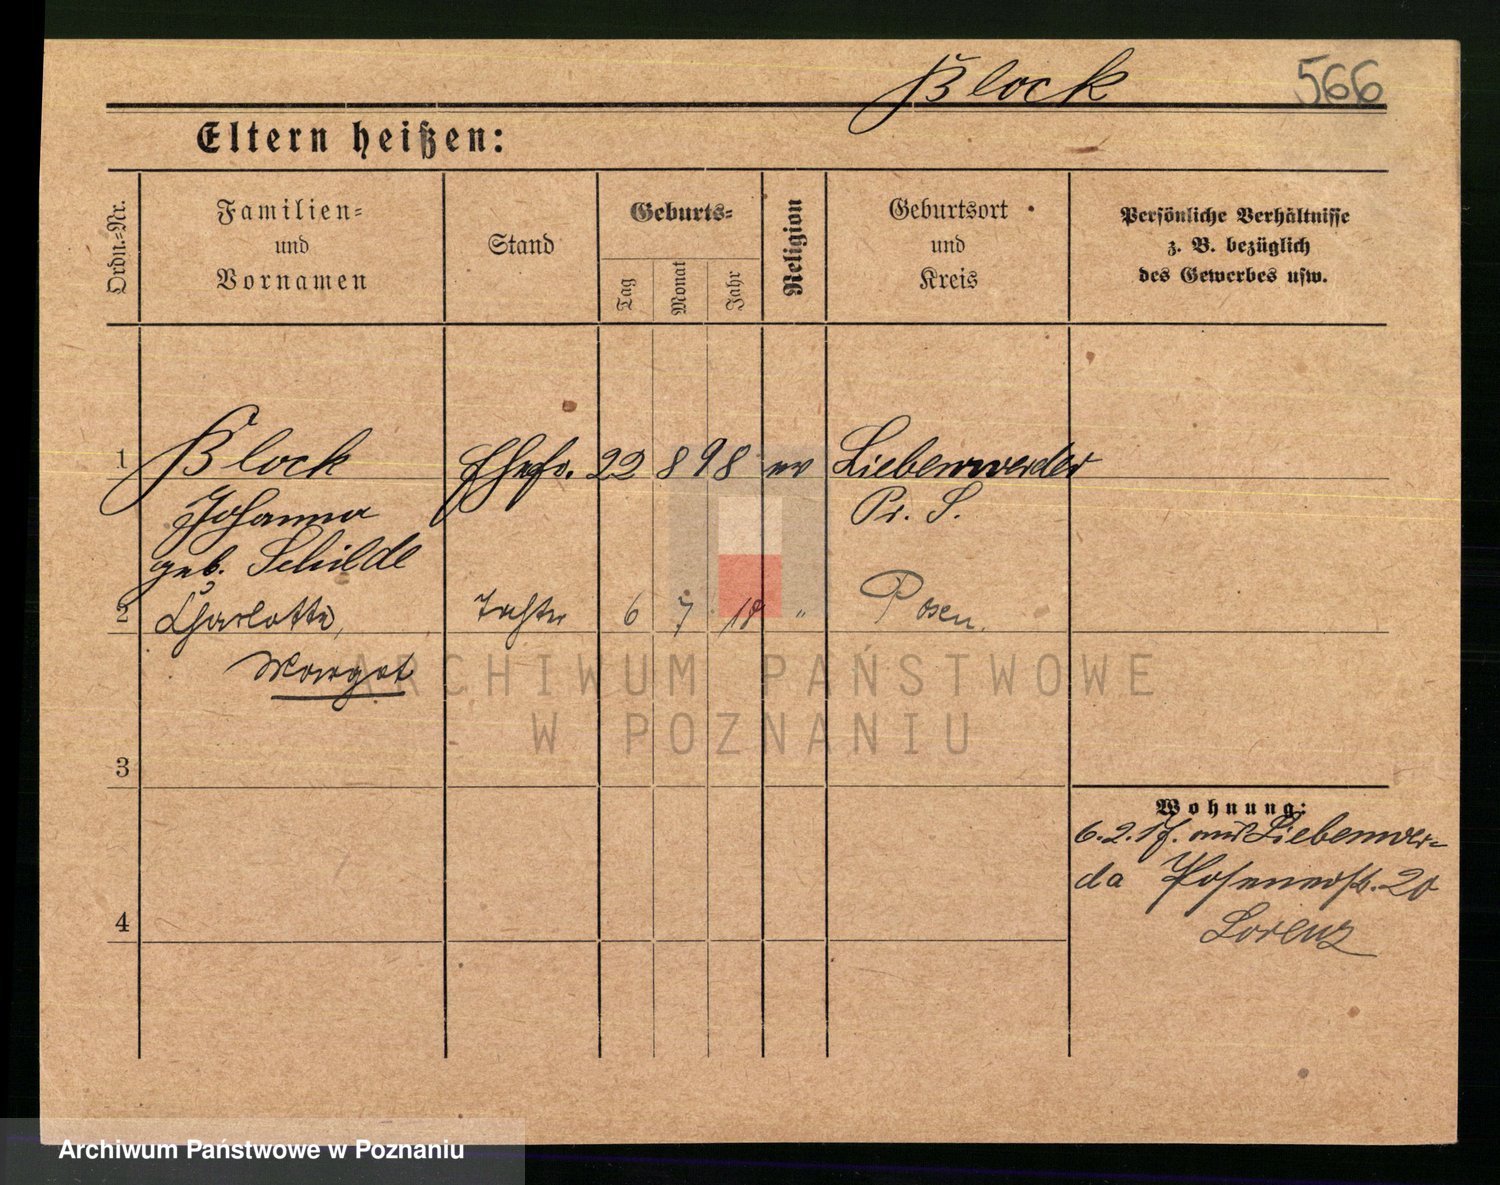 Block 566
Eltern heißen:
Ordn.-Nr.
Familien-
und
Vornamen
Stand
Geburts-
Tag
Monat
Jahr
Religion
Geburtsort
und
Kreis
Persönliche Verhältnisse
z. B. bezüglich
des Gewerbes usw.
1 Block Ehefr. 22 8 98 ev Liebenwerder
Johanna Pr. S.
geb. Schilde
2 Charlotte, Tochter 6 7 18 " Posen.
Margot
3
4
Wohnung:
6.2.17. aus Liebenwer=
da Posenerstr. 20
Lorenz
ARCHIWUM PAŃSTWOWE
W POZNANIU
Archiwum Państwowe w Poznaniu